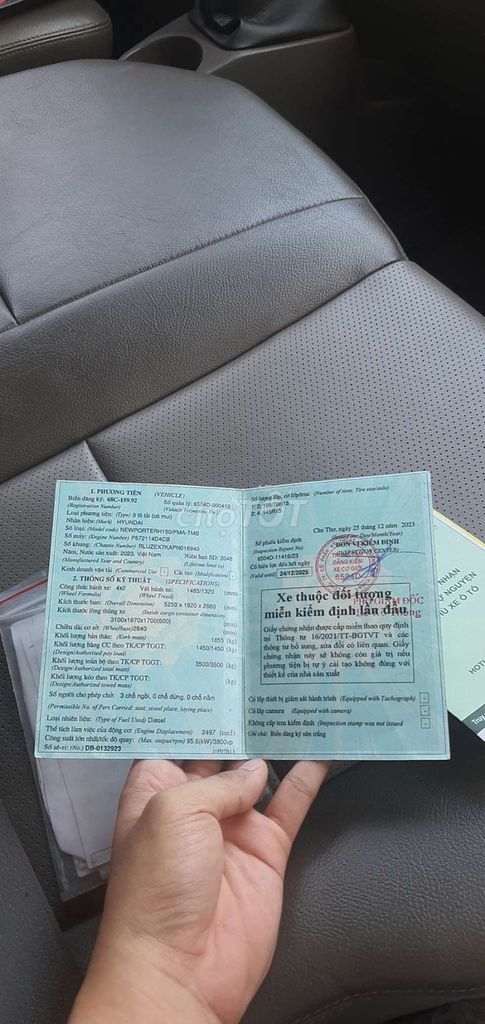 1. PHƯƠNG TIỆN (VEHICLE)
Biển đăng ký: 68C-159.92 Số quản lý: 6504D-000410
(Registration Number) (Vehicle Inspection No.)
Loại phương tiện: (Type) ô tô tải (có mui)
Nhãn hiệu: (Mark) HYUNDAI
Số loại: (Model code) NEWPORTERH150/PMA-TMB
Số máy: (Engine Number) P572114D4CB
Số khung: (Chassis Number) RLUZEX7KAPN016940
Năm, Nước sản xuất: 2023, Việt Nam Niên hạn SD: 2048
(Manufactured Year and Country) (Lifetime limit to)
Kinh doanh vận tải (Commercial Use) - Cải tạo (Modification) -
2. THÔNG SỐ KỸ THUẬT (SPECIFICATIONS)
Công thức bánh xe: 4x2 Vết bánh xe: 1485/1320 (mm)
(Wheel Formula) (Wheel Tread)
Kích thước bao: (Overall Dimension) 5250 x 1820 x 2660 (mm)
Kích thước lòng thùng xe: (Inside cargo container dimension)
3100x1670x1700(600) (mm)
Chiều dài cơ sở: (Wheelbase) 2640 (mm)
Khối lượng bản thân: (Kerb mass) 1855 (kg)
Khối lượng hàng CC theo TK/CP TGGT: 1450/1450 (kg)
(Design/Authorized pay load)
Khối lượng toàn bộ theo TK/CP TGGT: 3500/3500 (kg)
(Design/Authorized total mass)
Khối lượng kéo theo TK/CP TGGT: (kg)
(Design/Authorized towed mass)
Số người cho phép chở: 3 chỗ ngồi, 0 chỗ đứng, 0 chỗ nằm
(Permissible No. of Pers Carried: seat, stood place, laying place)
Loại nhiên liệu: (Type of Fuel Used) Diesel
Thể tích làm việc của động cơ: (Engine Displacement) 2497 (cm3)
Công suất lớn nhất/tốc độ quay: (Max. output/rpm) 95.6(kW)/3800vp
Số sê-ri: (No.) DB-0132923
Số lượng lốp, cỡ lốp/trục (Number of tires; Tire size/axle)
1: 2; 195/70R15
2: 4; 145R13
Cần Thơ, ngày 25 tháng 12 năm 2023
(Issued on: Day/Month/Year)
Số phiếu kiểm định
(Inspection Report No)
6504D-11416/23
ĐƠN VỊ KIỂM ĐỊNH
(INSPECTION CENTER)
Có hiệu lực đến hết ngày
(Valid until) 24/12/2025
ĐĂNG KIỂM
XE CƠ GIỚI
6504D
PHÓ GIÁM ĐỐC
Xe thuộc đối tượng
miễn kiểm định lần đầu
Giấy chứng nhận được cấp miễn theo quy định
tại Thông tư 16/2021/TT-BGTVT và các
thông tư bổ sung, sửa đổi có liên quan. Giấy
chứng nhận này sẽ không còn giá trị nếu
phương tiện bị tự ý cải tạo không đúng với
thiết kế của nhà sản xuất
Có lắp thiết bị giám sát hành trình (Equipped with Tachograph) -
Có lắp camera (Equipped with camera) -
Không cấp tem kiểm định (Inspection stamp was not issued -
Ghi chú: Biển đăng ký nền trắng
CHỢ TỐT
NHÂN
HOT